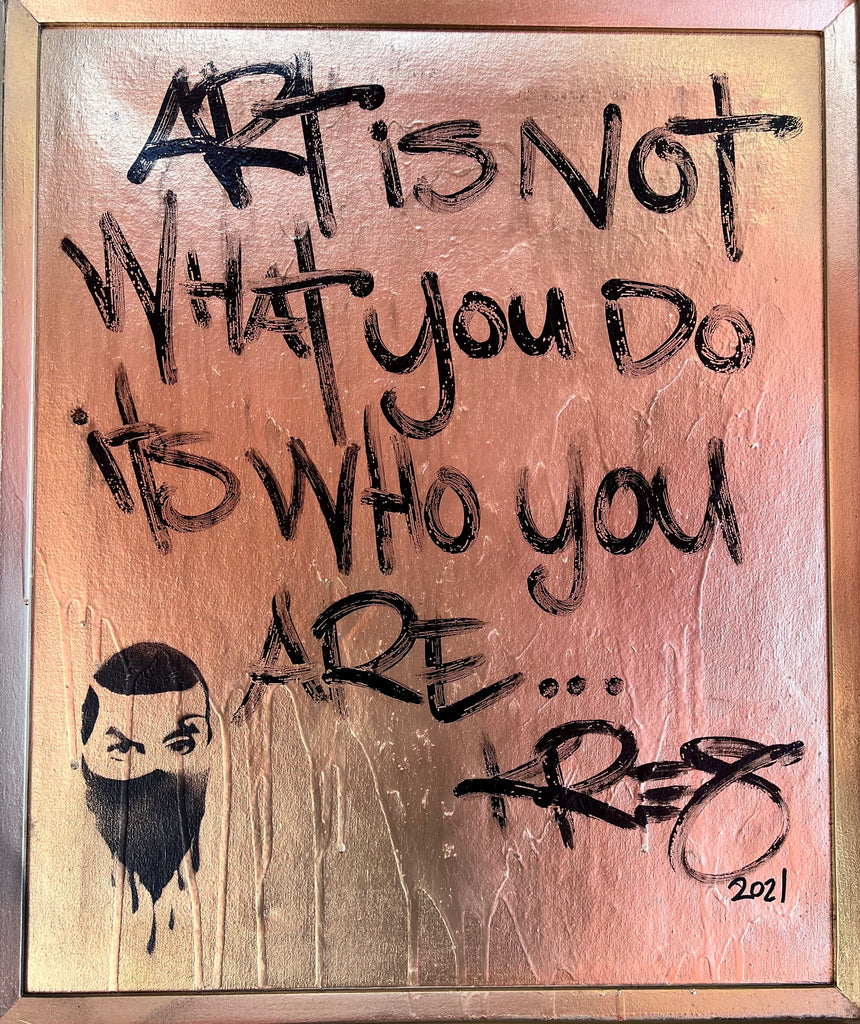 ART iS NOT
WHAT YOU DO
iTS WHO YOU
ARE...
KRE8
2021